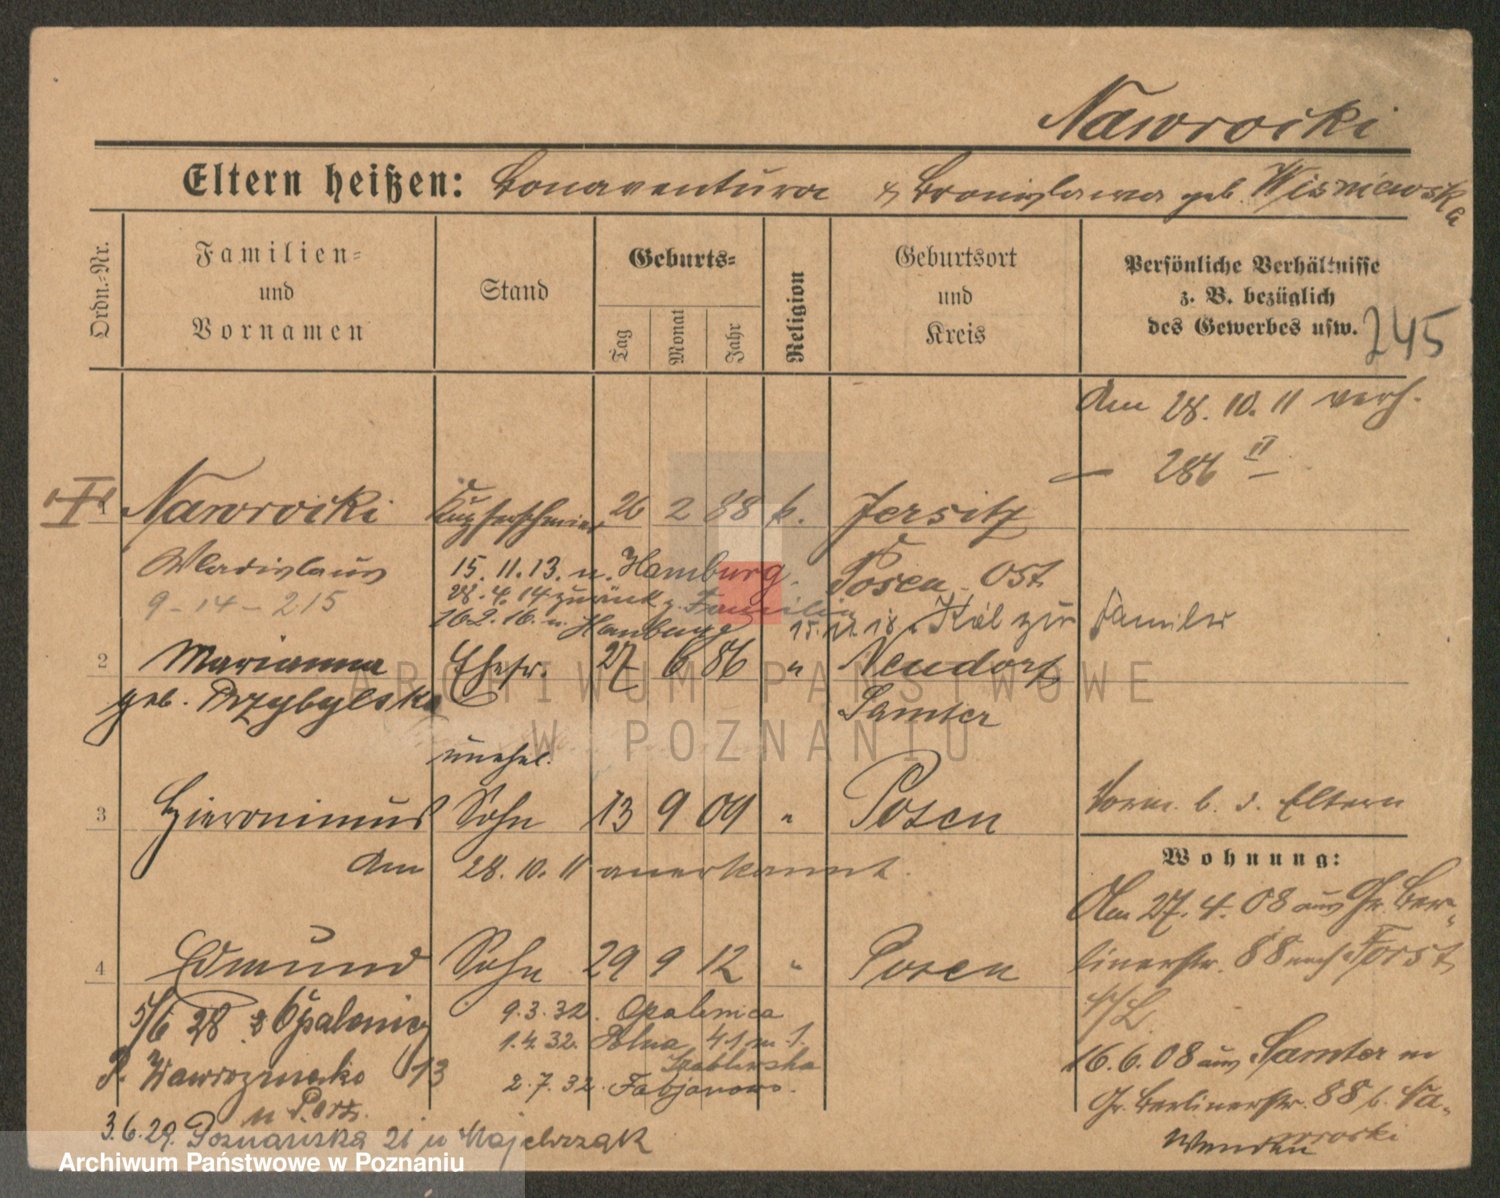 Nawrocki
Eltern heißen: Bonaventura & Bronislawa geb. Wisniewska
Ordn.-Nr.
Familien-
und
Vornamen
Stand
Geburts-
Tag
Monat
Jahr
Religion
Geburtsort
und
Kreis
Persönliche Verhältnisse
z. B. bezüglich
des Gewerbes usw.
245
Am 28. 10. 11 verh.
286 II
Nawrocki Kupferschmied 26 2 88 k. Jersitz
Wladislaus 15. 11. 13. n. Hamburg. Posen Ost
9-14-215 28. 4. 14 zurück z. Familie
16. 2. 16. n. Hamburg 15. 12. 18 Kiel zur Familie
2 Marianna Ehefr. 27 6 86 " Neudorf
geb. Przybylska Samter
unehel.
3 Hieronimus Sohn 13 9 09 " Posen
Vorm. b. d. Eltern
Am 28. 10. 11 anerkannt.
Wohnung:
Am 27. 4. 08 aus Gr. Ber-
linerstr. 88 nach Forst
i/L.
4 Edmund Sohn 29 9 12 " Posen
5/6 28 z Opalenicy 9. 3. 32. Opalenica
1. 4. 32. 41 m 1.
P. Wawrzyniaka 13 Szablewska
2. 7. 32. Fabjanowo.
16. 6. 08 aus Samter in
Gr. Berlinerstr. 88 b.
3. 6. 29. Poznańska 21 u Majchrzak
ARCHIWUM PAŃSTWOWE
W POZNANIU
Archiwum Państwowe w Poznaniu